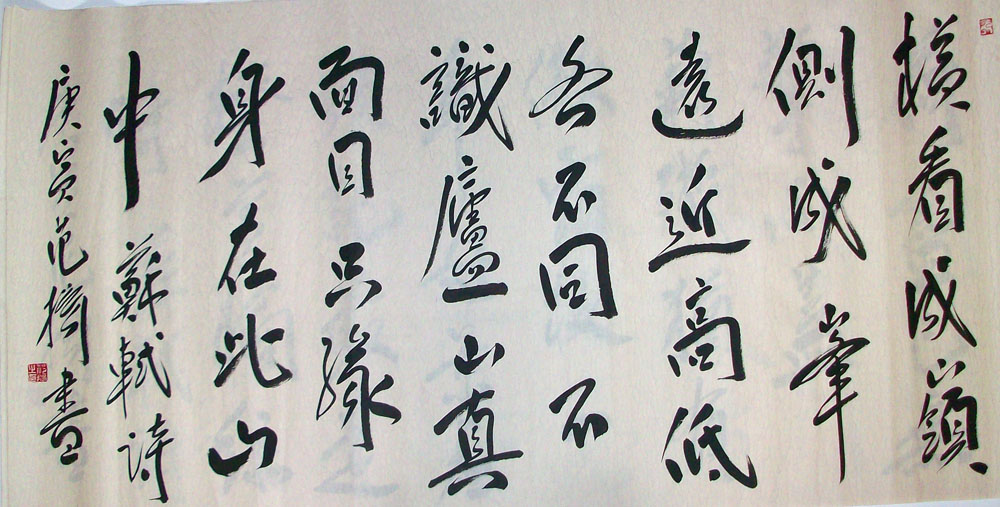 横看成嶺
側成峯
遠近高低
各不同不
識廬山真
面目只緣
身在此山
中 蘇軾詩
庚寅范書